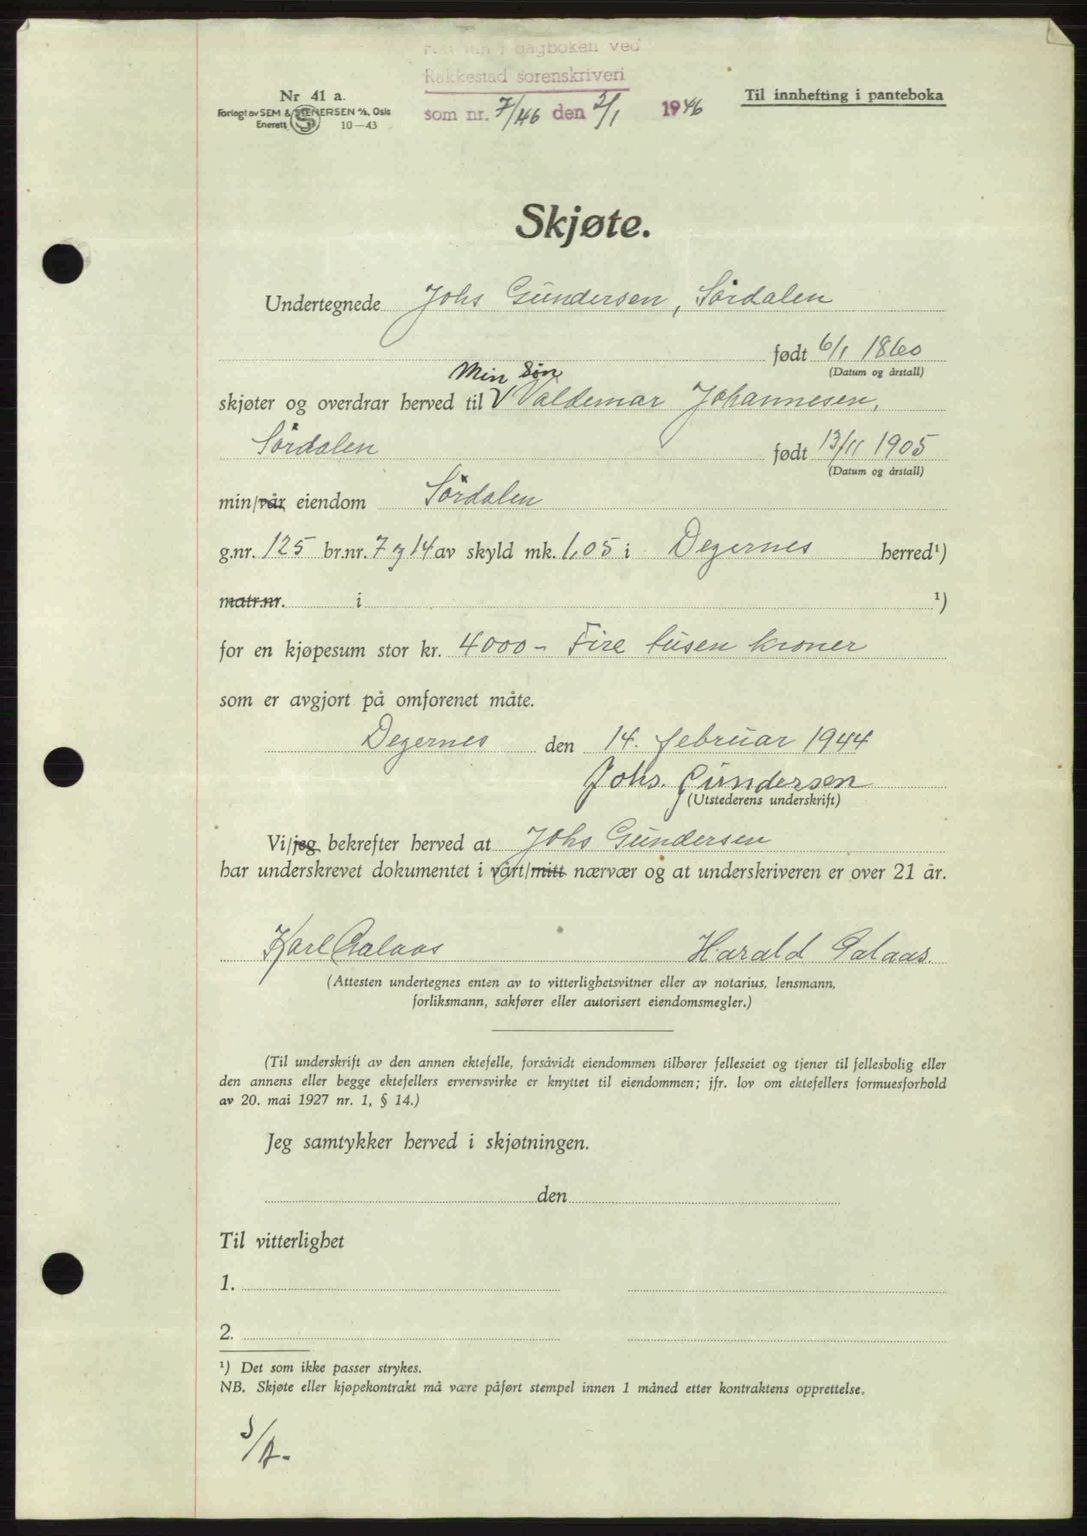 Nr 41 a.
Forlagt av SEM & STENERSEN A/S, Oslo
Enerett 10—43
dagboken ved
Rakkestad sorenskriveri
som nr. 7/46 den 2/1 1946
Til innhefting i panteboka
Skjøte.
Undertegnede Johs Gundersen, Sørdalen
født 6/1 1860
(Datum og årstall)
Min Søn
skjøter og overdrar herved til V Valdemar Johannesen,
Sørdalen født 13/11 1905
(Datum og årstall)
min/vår eiendom Sørdalen
g.nr. 125 br.nr. 7 og 14 av skyld mk. 1,05 i Degernes herred¹)
matr.nr. i ¹)
for en kjøpesum stor kr. 4000 - Fire tusen kroner
som er avgjort på omforenet måte.
Degernes den 14. februar 1944
Johs. Gundersen
(Utstederens underskrift)
Vi/jeg bekrefter herved at Johs Gundersen
har underskrevet dokumentet i vårt/mitt nærvær og at underskriveren er over 21 år.
Karl Aalaas Harald Aalaas.
(Attesten undertegnes enten av to vitterlighetsvitner eller av notarius, lensmann,
forliksmann, sakfører eller autorisert eiendomsmegler.)
(Til underskrift av den annen ektefelle, forsåvidt eiendommen tilhører felleseiet og tjener til fellesbolig eller
den annens eller begge ektefellers ervervsvirke er knyttet til eiendommen; jfr. lov om ektefellers formuesforhold
av 20. mai 1927 nr. 1, § 14.)
Jeg samtykker herved i skjøtningen.
den
Til vitterlighet
1.
2.
¹) Det som ikke passer strykes.
NB. Skjøte eller kjøpekontrakt må være påført stempel innen 1 måned etter kontraktens opprettelse.